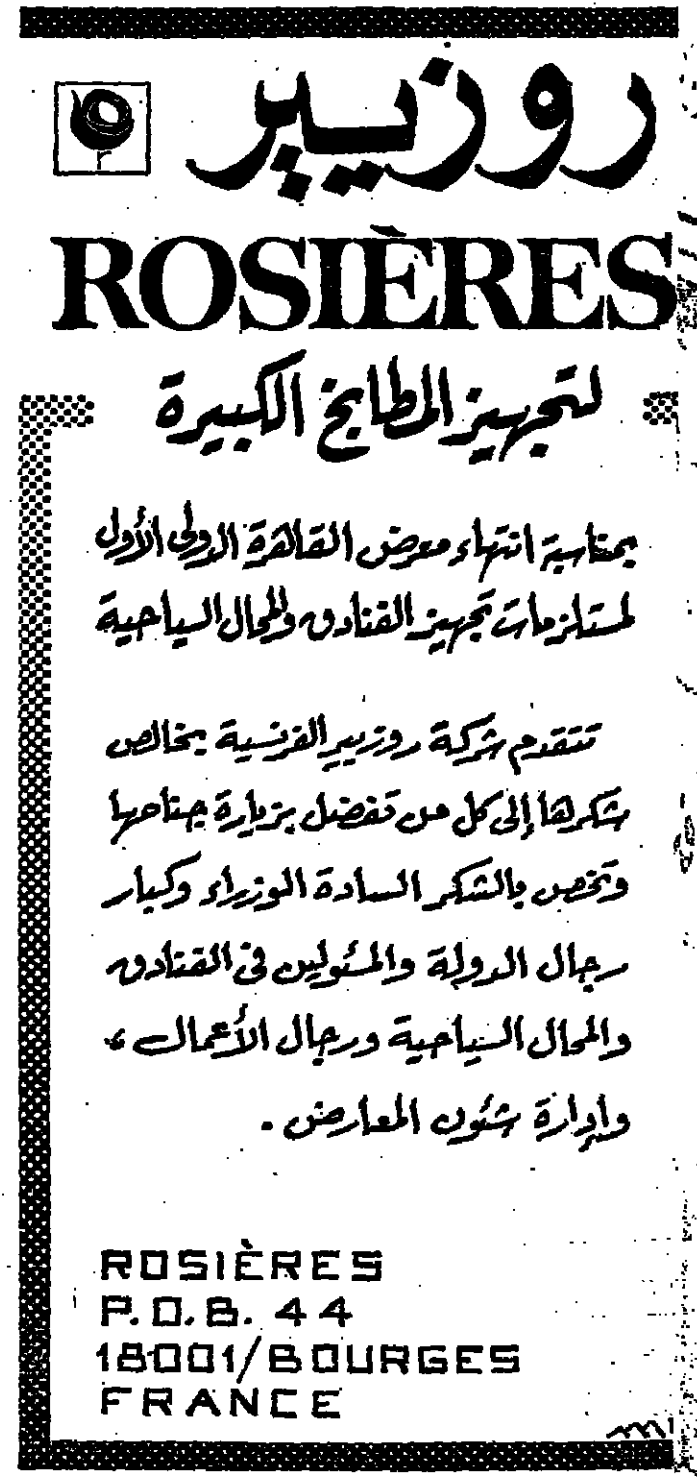 روزيير
ROSIÈRES
لتجهيز المطابخ الكبيرة
بمناسبة انتهاء معرض القاهرة الدولى الأول
لمستلزمات تجهيز الفنادق والمحال السياحية
تتقدم شركة روزيير الفرنسية بخالص
شكرها إلى كل من تفضل بزيارة جناحها
وتخص بالشكر السادة الوزراء وكبار
رجال الدولة والمسئولين فى الفنادق
والمحال السياحية ورجال الأعمال ،
وإدارة شئون المعارض .
ROSIÈRES
P.O.B. 44
18001/BOURGES
FRANCE